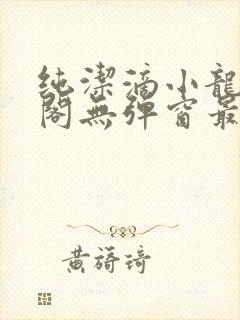 純潔滴小龍
閣無彈窗最
黃籌琦